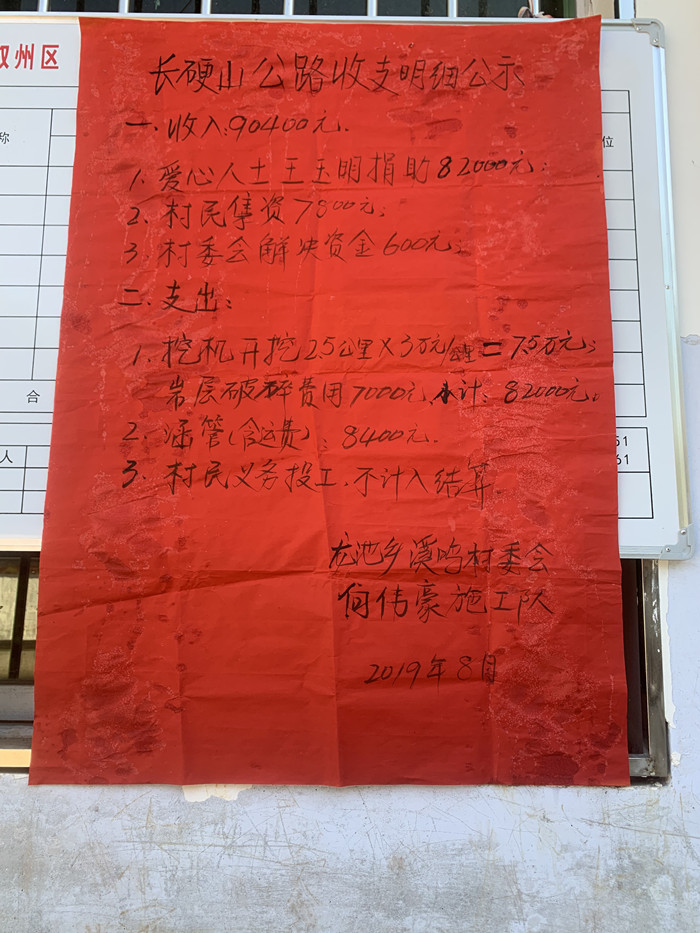 叙州区
称
位
合
人
51
61
长硬山公路收支明细公示
一.收入:90400元.
1.爱心人士王玉明捐助82000元;
2.村民集资7800元;
3.村委会解决资金600元;
二.支出:
1.挖机开挖2.5公里×3万元/公里=7.5万元;
岩层破碎费用7000元,小计:82000元。
2.涵管(含运费):8400元.
3.村民义务投工,不计入结算.
龙池乡溪鸣村委会
何伟豪施工队
2019年8月